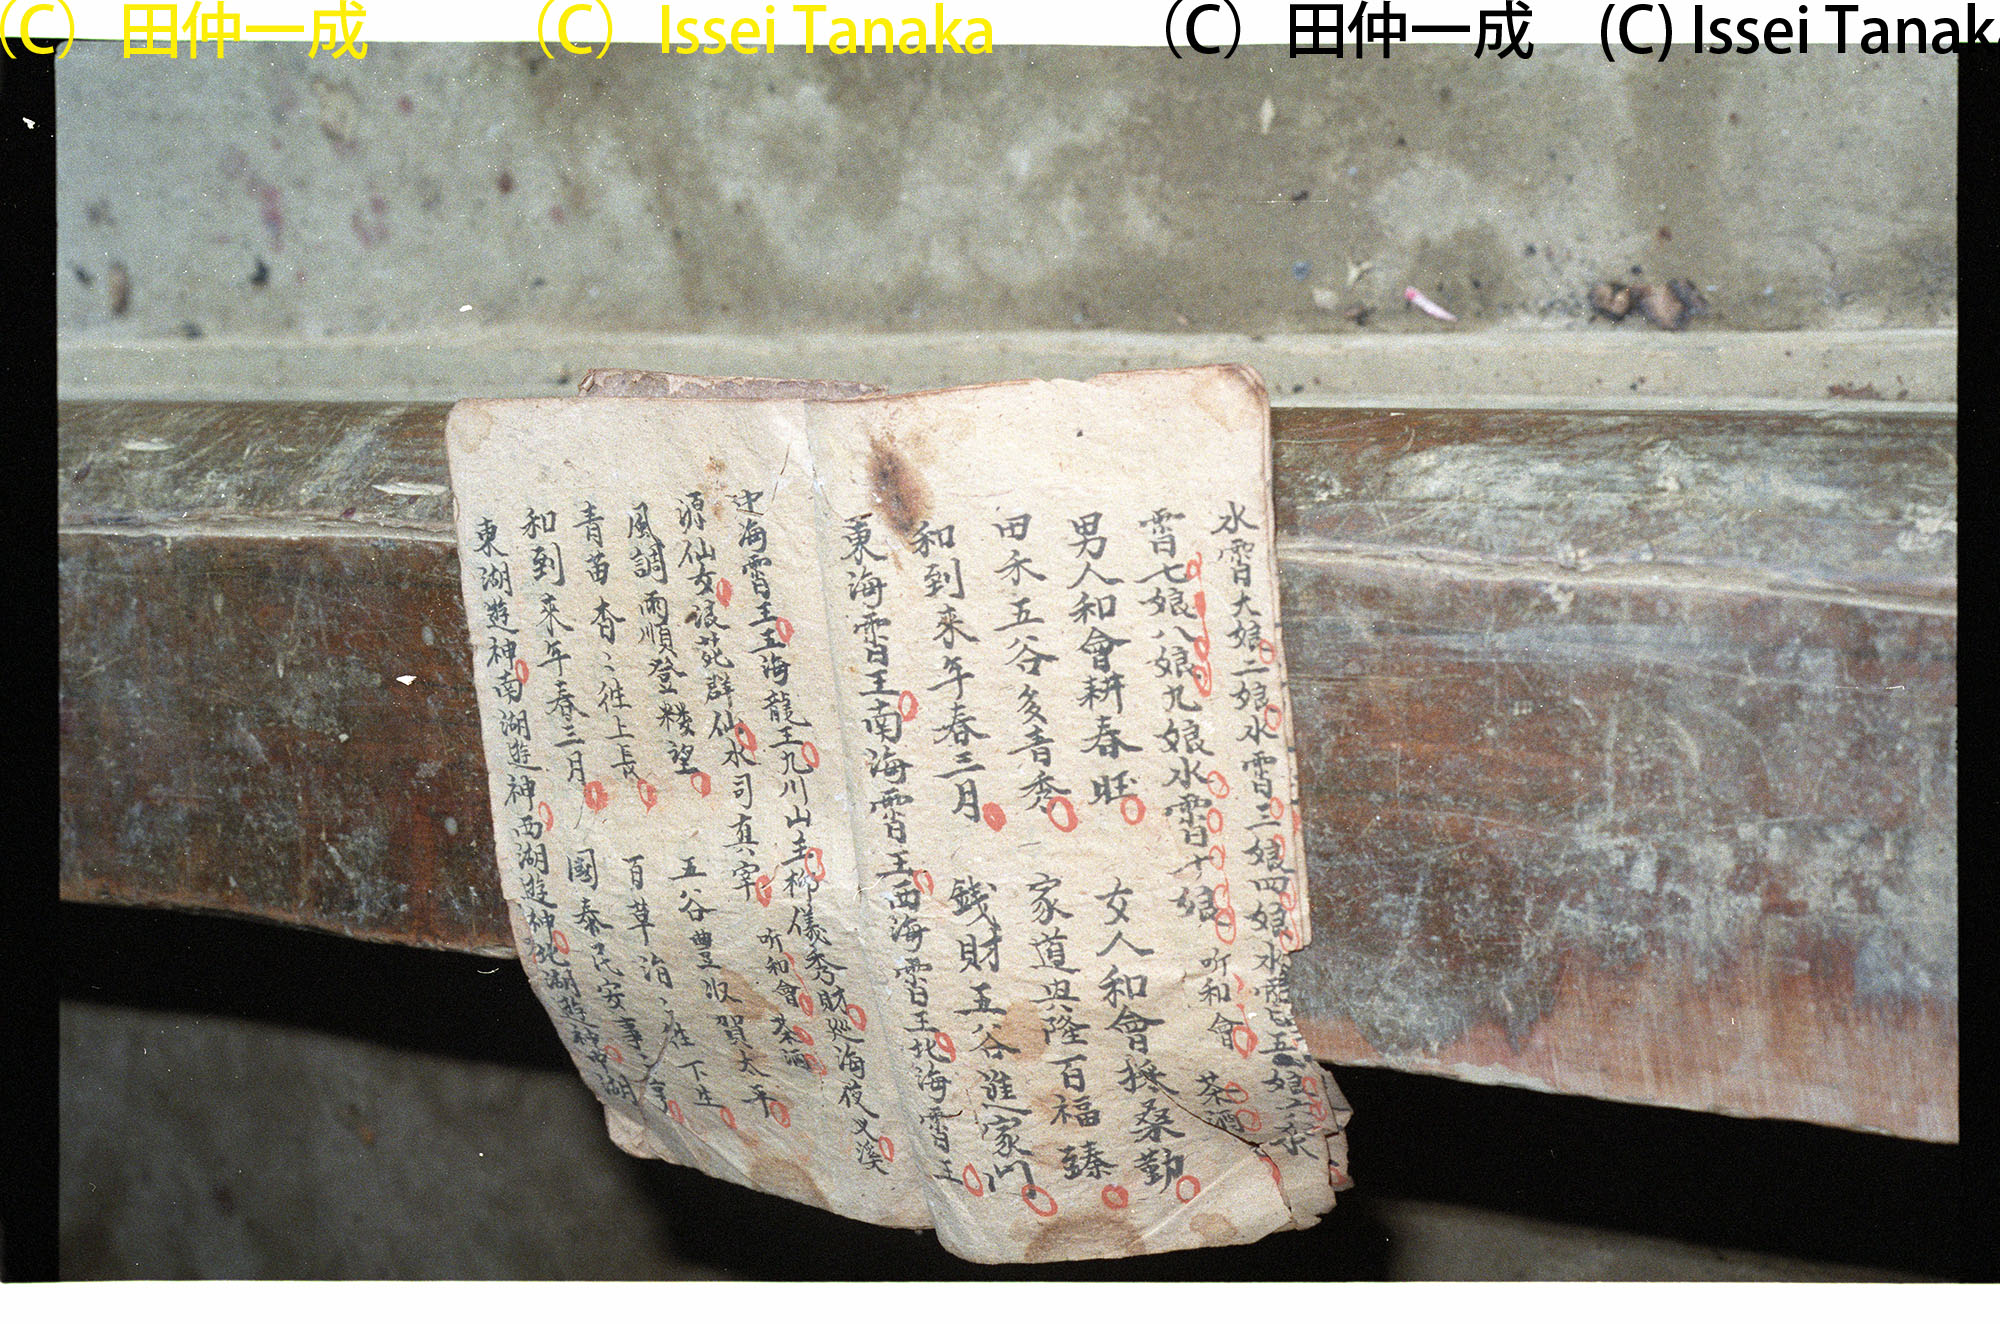 (C) 田仲一成 (C) Issei Tanaka (C) 田仲一成 (C) Issei Tanaka
水霄大娘二娘水霄三娘四娘水霄五娘六
霄七娘八娘九娘水霄十娘 听和會 茶酒
男人和會耕春旺 女人和會採桑勤
田禾五谷多青秀 家道興隆百福臻
和到來年春三月 錢財五谷進家门
東海霄王南海霄王西海霄王北海霄王
中海霄王玉海龍王九川山主柳儀秀財巡海夜叉溪
源仙女浪苑群仙水司真宰 听和會 茶酒
風調雨順登楼望 五谷豊収賀太平
青苗杳〻往上長 百草涓〻往下生
和到來年春三月 國泰民安事〻亨
東湖遊神南湖遊神西湖遊神北湖遊神中湖